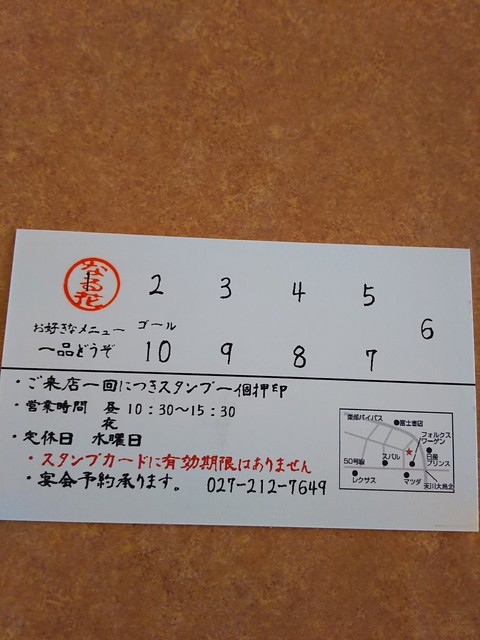 1 2 3 4 5
6
お好きなメニュー ゴール
一品どうぞ 10 9 8 7
・ご来店一回につきスタンプ一個押印
・営業時間 昼 10:30～15:30
夜
・定休日 水曜日
・スタンプカードに有効期限はありません
・宴会予約承ります。 027-212-7649
富士書店
フォルクス
ワーゲン
日産
プリンス
50号線
スバル
レクサス
マツダ
天川大島北